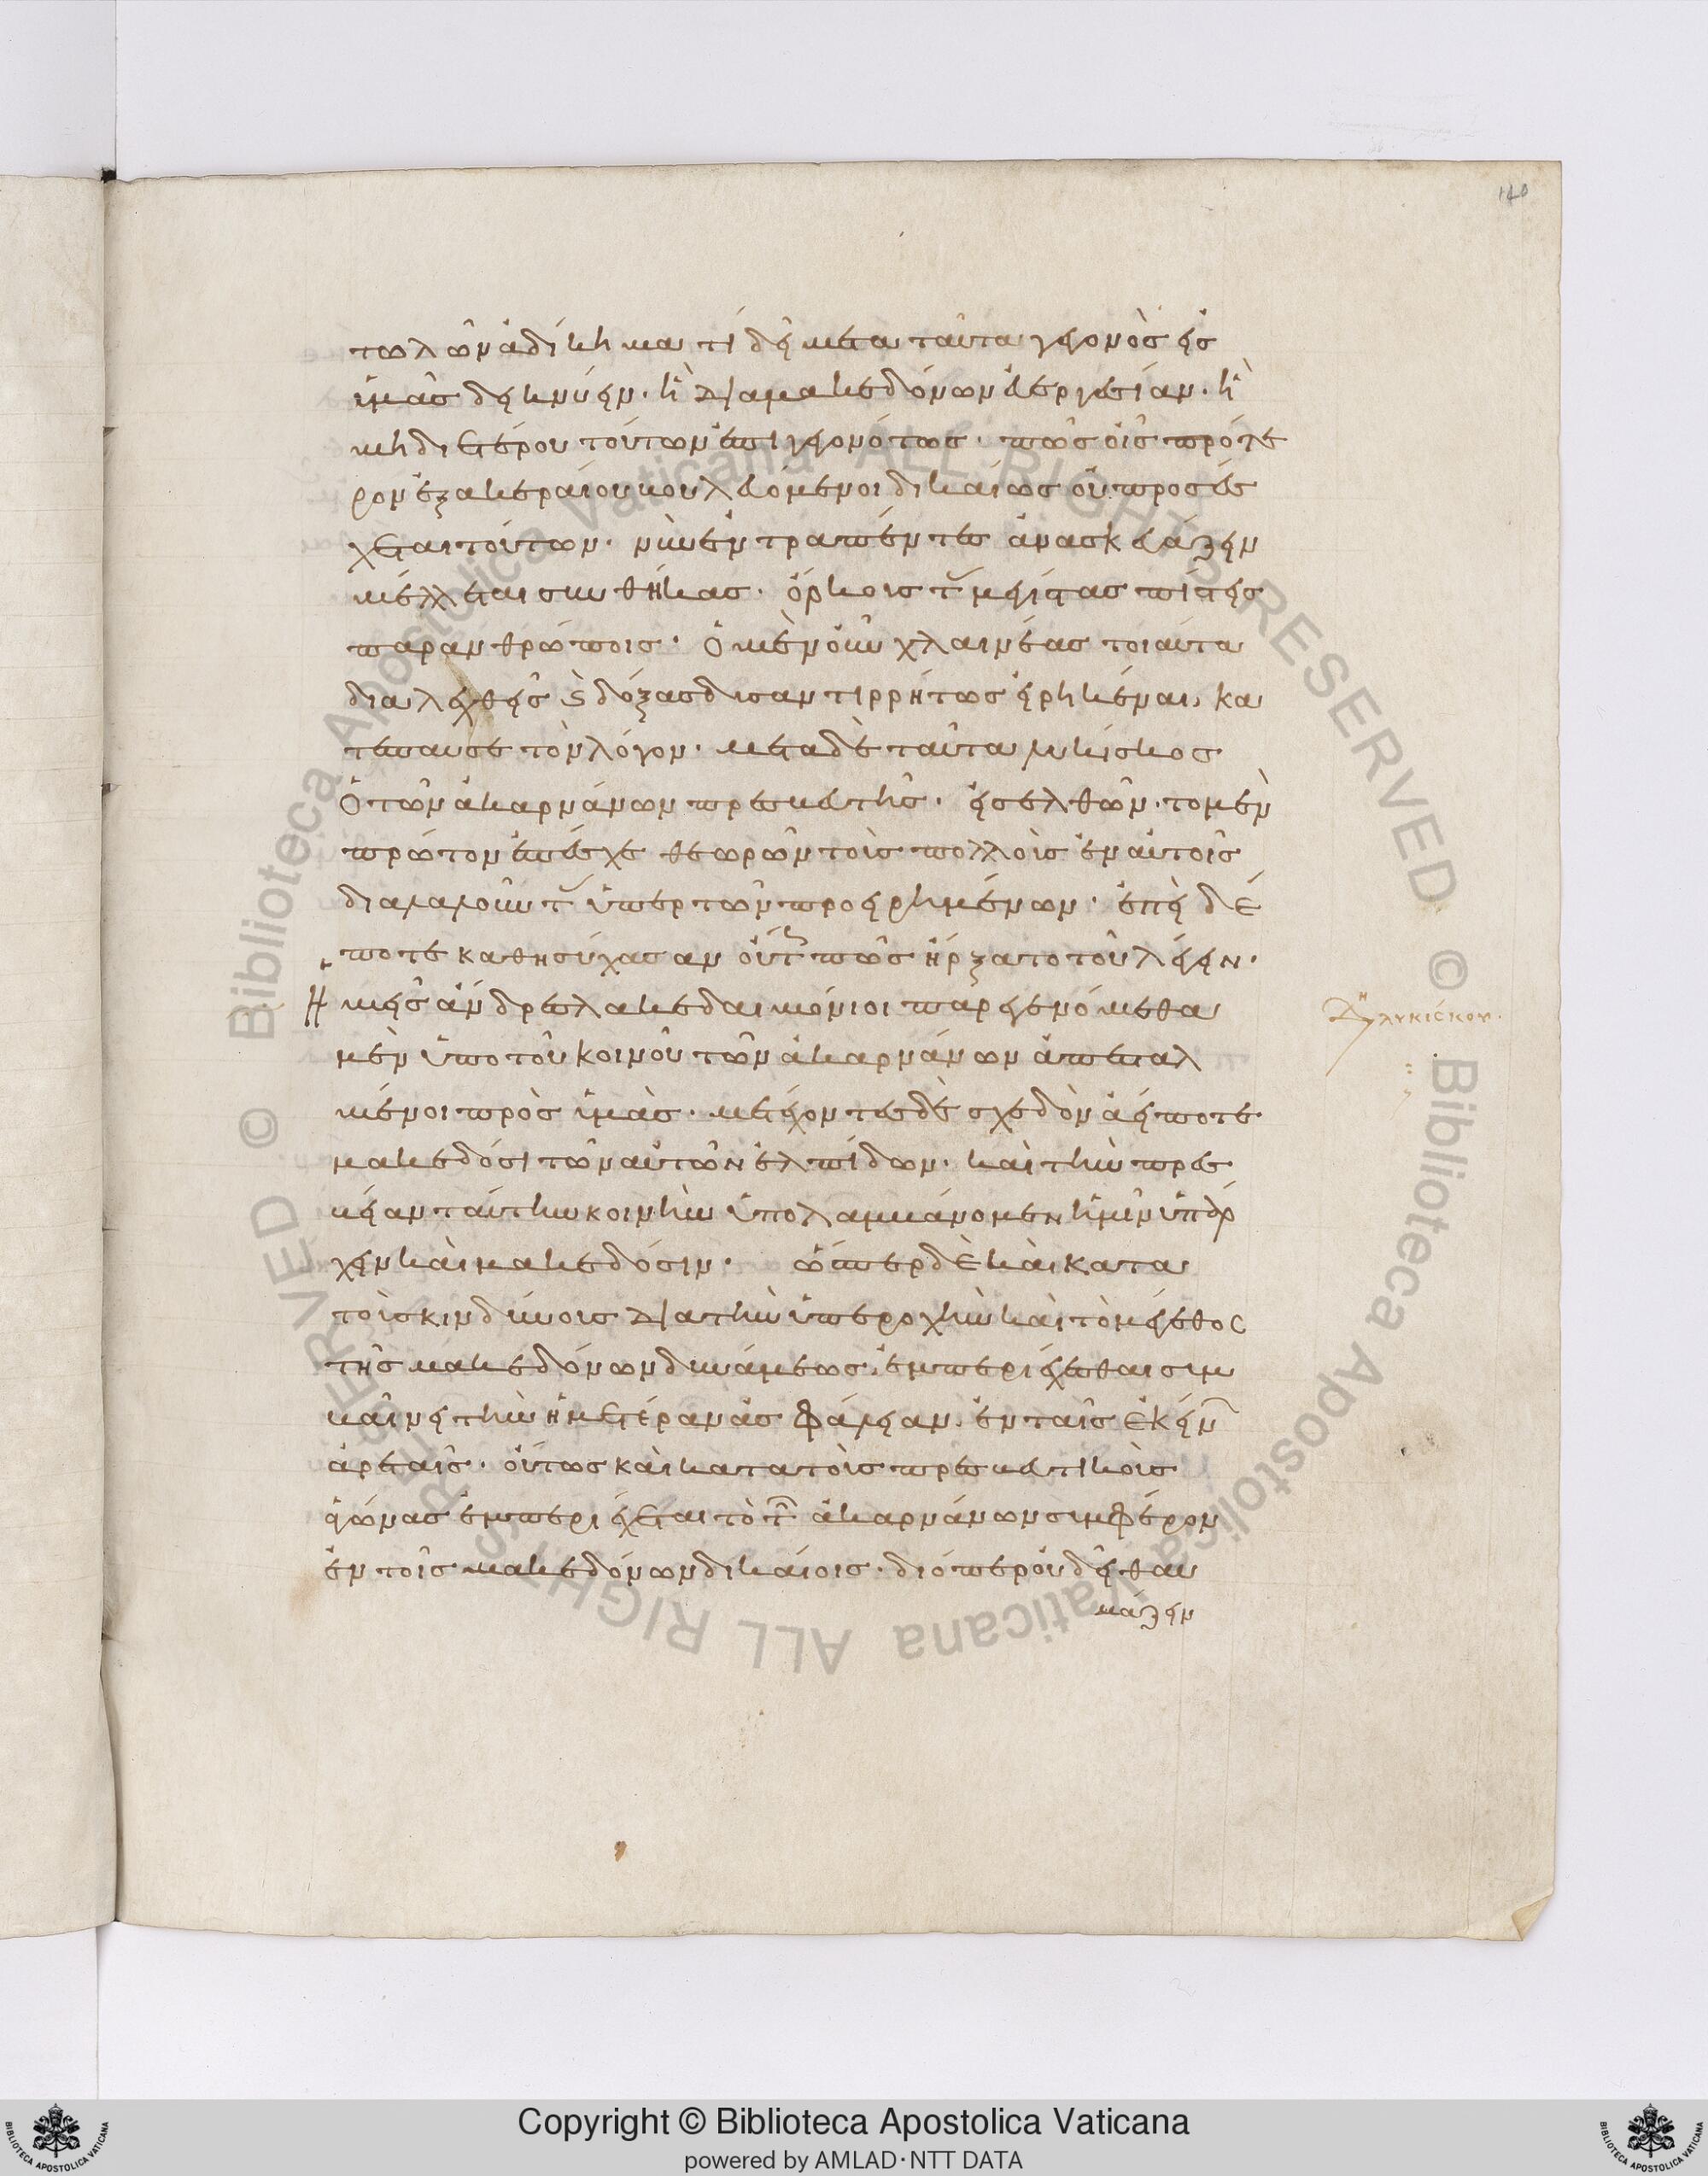 τωλῶν ἀδίκημα τί δεῖ μετα ταῦτα γεγονὸς εἰς
ὑμᾶς δεικνύειν· ἢ δια μακεδόνων εὐεργεσίαν· ἢ
μηδετέρου τούτων ἐπιγεγονότως· πῶς οἷς πρότε
ρον ἐξακεραίου βουλευόμενοι δικαίως οὐ προσεί
χεται τούτων· νῦν ἐντραπέντες ἀνασκευάζειν
μέλλεται συνθήκας· ὅρκοις τ μεγίστας πίστεις
παρανθρώποις· ὁ μὲν οὖν χλαινέας τοιαῦτα
διαλεχθεὶς ϗ δόξας δυσαντιρρήτως εἰρηκέναι, κα
τέπαυσε τὸν λόγον· μετα δὲ ταῦτα λυκίσκος
ὁ τῶν ἀκαρνάνων πρεσβευτὴς· εἰσελθὼν· τομὲν
πρώτον ἐπέσχε θεωρῶν τοὺς πολλοὺς ἐν αὑτοῖς
διαλαλοῦντ ὑπερ τῶν προειρημένων· ἐπεὶ δέ
ποτε καθησύχασαν οὕτ πῶς ἤρξατο τοῦ λέγειν·
Ἡμεῖς ἄνδρες λακεδαιμόνιοι παρεγενόμεθα
μὲν ὑπο τοῦ κοινοῦ τῶν ἀκαρνάνων ἀπεσταλ
μένοι πρὸς ὑμᾶς· μετέχοντες δὲ σχεδὸν ἀείποτε
μακεδόσι τῶν αὐτῶν ἐλπίδων· καὶ τὴν πρεσ
βείαν ταύτην κοινὴν ὑπολαμβάνομεν ἡμῖν ὑπάρ
χειν καὶ μακεδόσιν· ὥσπερ δὲ καὶ κατα
τοὺς κινδύνους δια τὴν ὑπεροχὴν καὶ τὸ μέγεθος
τῆς μακεδόνων δυνάμεως ἐμπεριέχεσθαι συμ
βαίνει τὴν ἡμετέραν ἀσφάλειαν ἐν ταῖς ἐκείν
ἀρεταῖς· οὕτως καὶ κατα τοὺς πρεσβευτικοὺς
ἀγώνας ἐμπεριέχεται τὸ τ ἀκαρνάνων συμφέρον
ἐν τοῖς μακεδόνων δικαίοις· διόπερ οὐ δεῖ θαυ
μάζειν
Δη λυκίσκου·
140
Copyright © Biblioteca Apostolica Vaticana
powered by AMLAD·NTT DATA